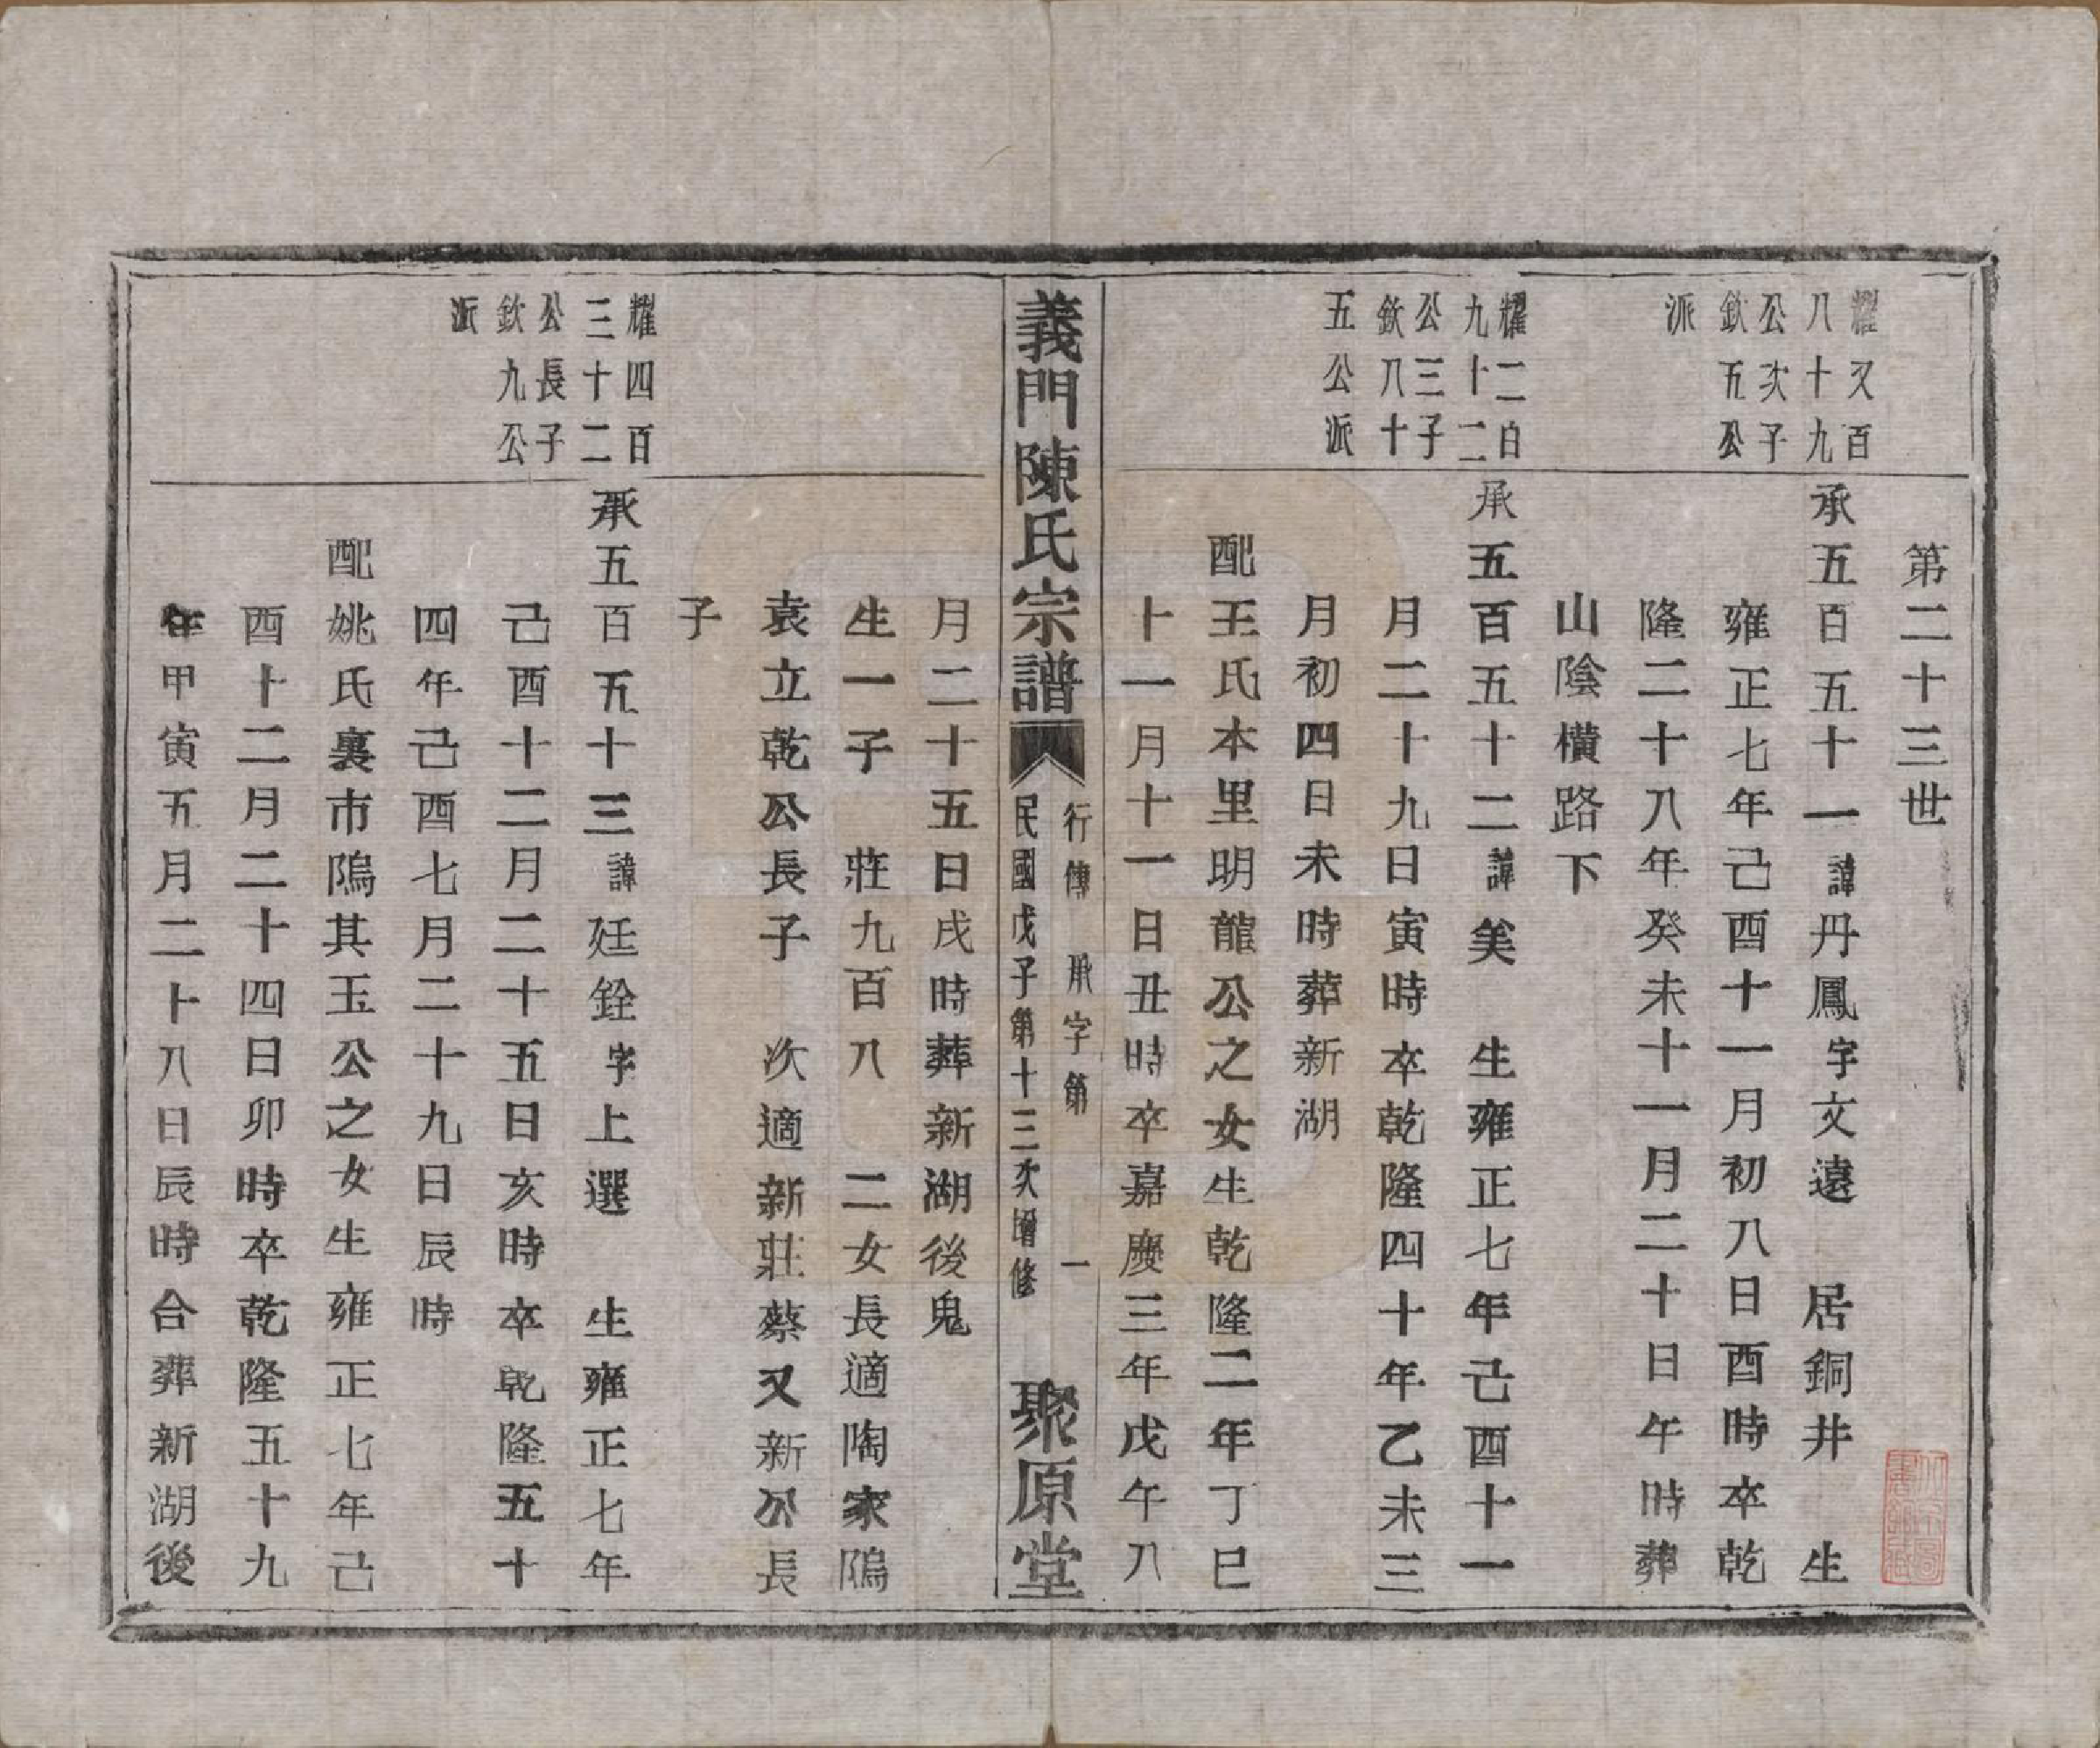 第二十三世
耀又百
八十九
公次子
欽五公
派
承五百五十一諱丹鳳字文遠　居銅井　生
雍正七年己酉十一月初八日酉時卒乾
隆二十八年癸未十一月二十日午時葬
山陰橫路下
耀二百
九十二
公三子
欽八十
五公派
承五百五十二諱美　生雍正七年己酉十一
月二十九日寅時卒乾隆四十年乙未三
月初四日未時葬新湖
配王氏本里明龍公之女生乾隆二年丁巳
十一月十一日丑時卒嘉慶三年戊午八
義門陳氏宗譜
行傳　承字第　一
民國戊子第十三次增修
聚原堂
月二十五日戌時葬新湖後鬼
生一子　莊九百八　二女長適陶家隖
袁立乾公長子　次適新莊蔡又新公長
子
耀四百
三十二
公長子
欽九公
派
承五百五十三諱廷銓字上選　生雍正七年
己酉十二月二十五日亥時卒乾隆五十
四年己酉七月二十九日辰時
配姚氏裏市隖其玉公之女生雍正七年己
酉十二月二十四日卯時卒乾隆五十九
年甲寅五月二十八日辰時合葬新湖後